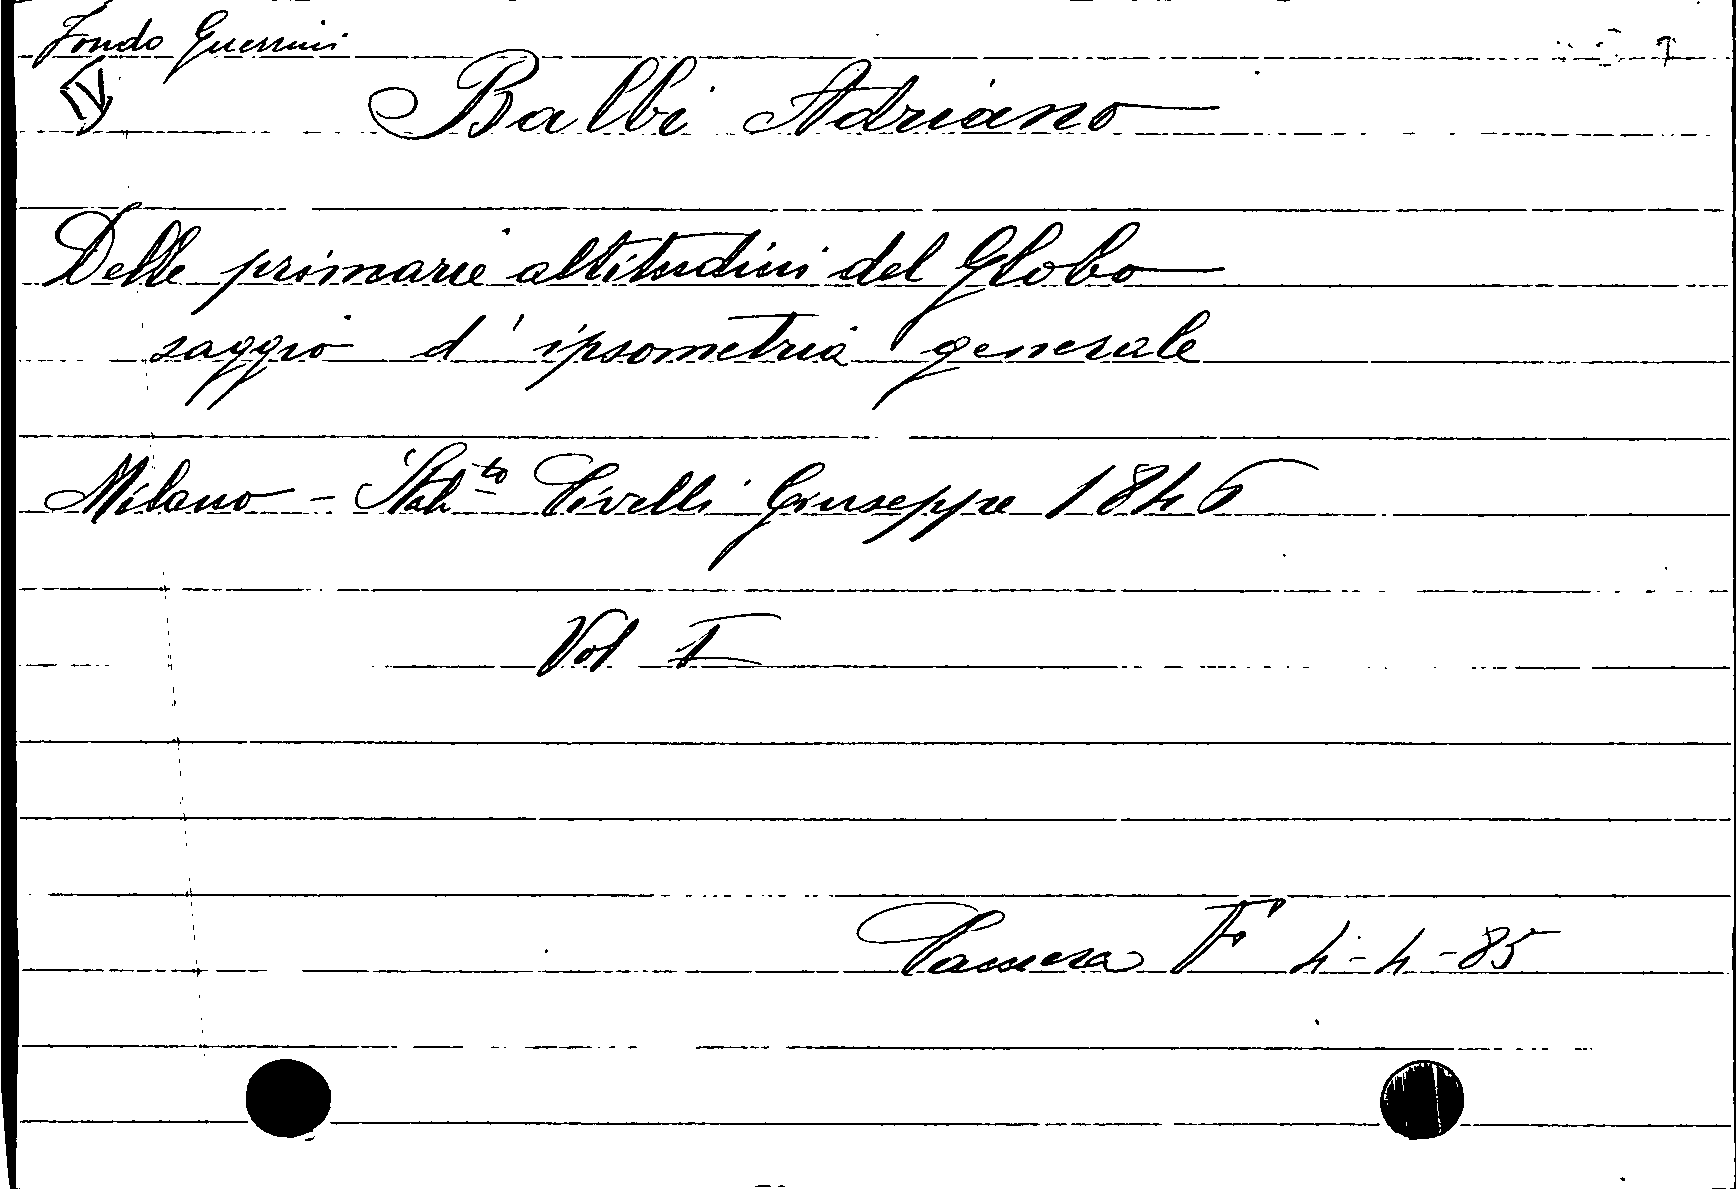 Fondo Guerrini
IV
Balbi Adriano
Delle primarie altitudini del Globo
saggio d'ipsometria generale
Milano - Stab.to Civelli Giuseppe 1846
Vol I
Camera F 4-4-85